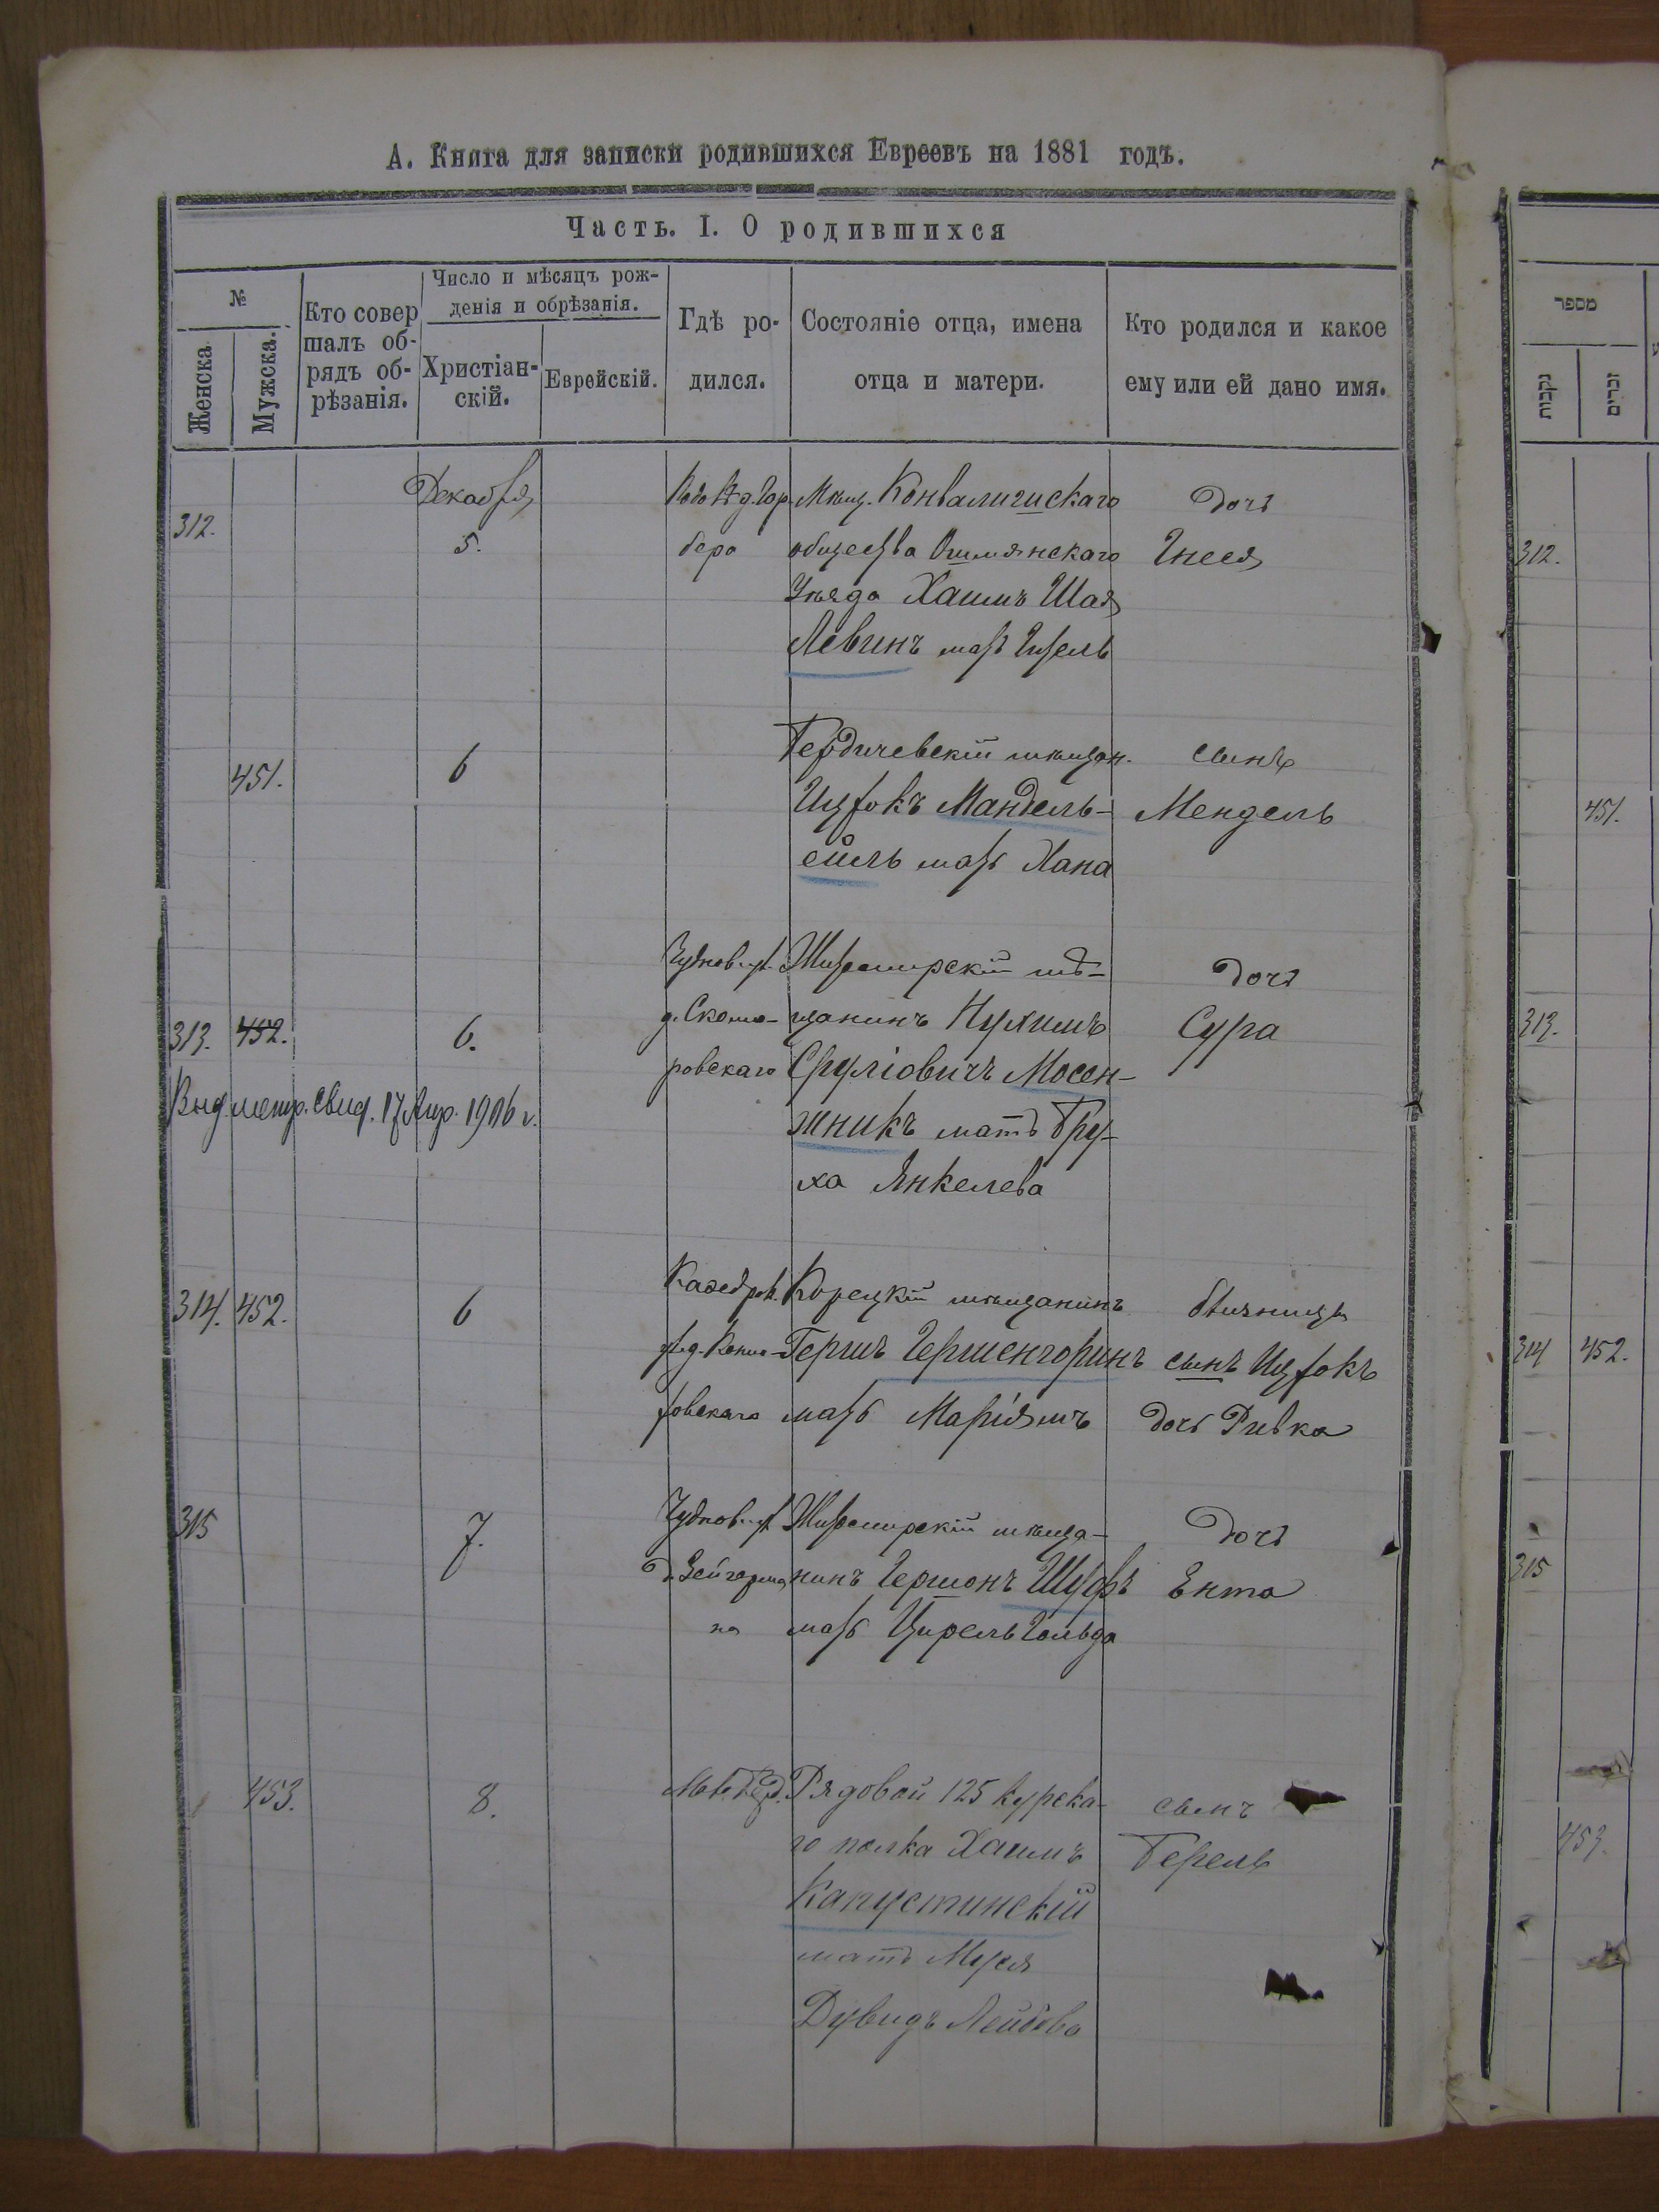 А. Книга для записки родившихся Евреевъ на 1881 годъ.
Часть. I. О родившихся
№
Женска
Мужска.
Кто совер
шалъ об-
рядъ об-
рѣзанія.
Число и мѣсяцъ рож-
денія и обрѣзанія.
Христіан-
скій.
Еврейскій.
Гдѣ ро-
дился.
Состояніе отца, имена
отца и матери.
Кто родился и какое
ему или ей дано имя.
312.
Декабря
5.
бера
Мѣщ. Конвалишскаго
общества Ошмянскаго
Уѣзда Хаимъ Шая
Левинъ мать
дочь
Гнеся
451.
6
Бердичевскій мѣщан.
Ицрокъ Мандель-
ейль мать Хана
сынъ
Мендель
313. 452.
6.
Выд. метр. свид. 17 Апр. 1906 г.
Чуднов. ул.
д. Скомо-
ровскаго
Житомирскій мѣ-
щанинъ Нухимъ
Сруліовичъ Мосен-
жникъ мать Бру-
ха Янкелева
дочь
Сура
314. 452.
6
Кафедрал.
ровскаго
Корецкій мѣщанинъ
Гершъ Гершенгоринъ
мать Маріямъ
близницы
сынъ Ицрокъ
дочь Ривка
315
7.
Чуднов. ул.
д. Зейгерма
на
Житомирскій мѣща-
нинъ Гершонъ Шуфъ
мать Цирель Гольда
дочь
Ента
453.
8.
Рядовой 125 Курска-
го полка Хаимъ
Капустинскій
мать Муся
Дувидъ Лейбова
сынъ
Берель
מספר
נקבות
זכרים
312.
451.
313.
314 452.
315
453.